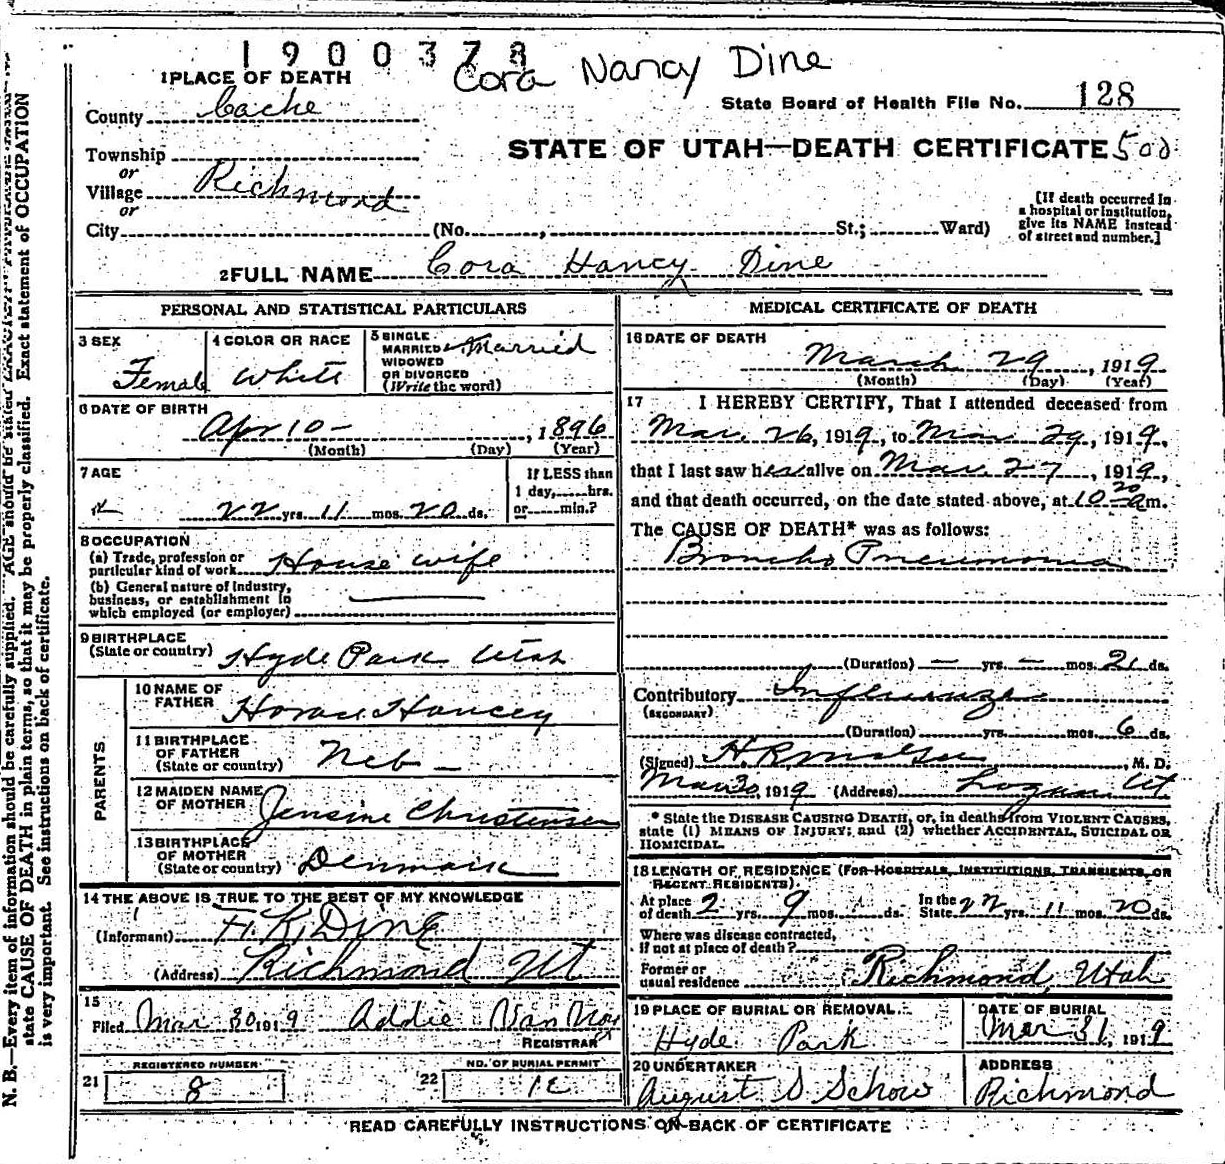 1900378
Cora Nancy Dine
1 PLACE OF DEATH
State Board of Health File No. 128
County Cache
STATE OF UTAH—DEATH CERTIFICATE 500
Township
or
Village Richmond
or
City (No. , St.; Ward)
[If death occurred in
a hospital or institution,
give its NAME instead
of street and number.]
2 FULL NAME Cora Hancy Dine
PERSONAL AND STATISTICAL PARTICULARS
3 SEX
Female
4 COLOR OR RACE
White
5 SINGLE
MARRIED Married
WIDOWED
OR DIVORCED
(Write the word)
6 DATE OF BIRTH
Apr 10 - , 1896
(Month) (Day) (Year)
7 AGE
22 yrs. 11 mos. 20 ds.
If LESS than
1 day, hrs.
or min.?
8 OCCUPATION
(a) Trade, profession or
particular kind of work House wife
(b) General nature of industry,
business, or establishment in
which employed (or employer)
9 BIRTHPLACE
(State or country) Hyde Park Utah
PARENTS
10 NAME OF
FATHER Horace Hancey
11 BIRTHPLACE
OF FATHER
(State or country) Neb -
12 MAIDEN NAME
OF MOTHER Jensine Christensen
13 BIRTHPLACE
OF MOTHER
(State or country) Denmark
14 THE ABOVE IS TRUE TO THE BEST OF MY KNOWLEDGE
(Informant) F. K. Dine
(Address) Richmond Ut
15
Filed Mar 30 1919 Addie Van Noy
REGISTRAR
REGISTERED NUMBER
21 8
NO. OF BURIAL PERMIT
22 12
MEDICAL CERTIFICATE OF DEATH
16 DATE OF DEATH
March 29, 1919
(Month) (Day) (Year)
17 I HEREBY CERTIFY, That I attended deceased from
Mar. 26, 1919, to Mar 29, 1919,
that I last saw her alive on Mar. 27, 1919,
and that death occurred, on the date stated above, at 10 20 a m.
The CAUSE OF DEATH* was as follows:
Broncho Pneumonia
(Duration) — yrs. — mos. 21 ds.
Contributory Influenza
(SECONDARY)
(Duration) yrs. mos. 6 ds.
(Signed) , M. D.
Mar 30, 1919 (Address) Logan Ut
* State the DISEASE CAUSING DEATH, or, in deaths from VIOLENT CAUSES,
state (1) MEANS OF INJURY; and (2) whether ACCIDENTAL, SUICIDAL OR
HOMICIDAL.
18 LENGTH OF RESIDENCE (FOR HOSPITALS, INSTITUTIONS, TRANSIENTS, OR
RECENT RESIDENTS).
At place
of death 2 yrs. 9 mos. ds.
In the
State 22 yrs. 11 mos. 20 ds.
Where was disease contracted,
if not at place of death?
Former or
usual residence Richmond, Utah
19 PLACE OF BURIAL OR REMOVAL
Hyde Park
DATE OF BURIAL
Mar 31, 1919
20 UNDERTAKER
August S Schow
ADDRESS
Richmond
READ CAREFULLY INSTRUCTIONS ON BACK OF CERTIFICATE
N. B.—Every item of information should be carefully supplied. AGE should be stated EXACTLY.
state CAUSE OF DEATH in plain terms, so that it may be properly classified. Exact statement of OCCUPATION
is very important. See instructions on back of certificate.